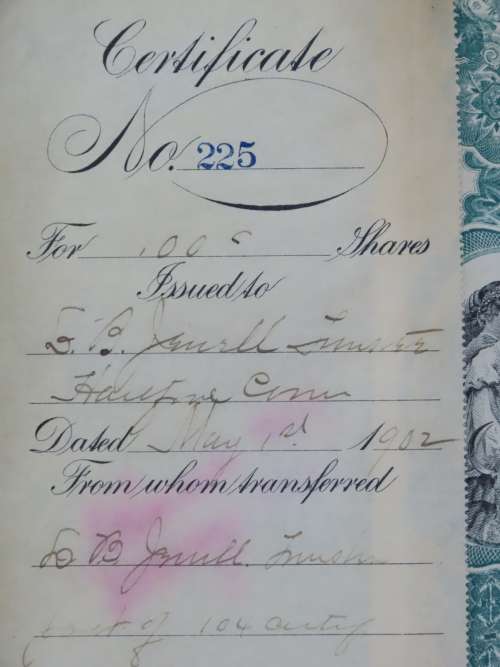 Certificate
No. 225
For 100 Shares
Issued to
B. Jewell Trustee
Hartford Conn
Dated May 1st 1902
From whom transferred
B Jewell Trustee
part of 104 Certif